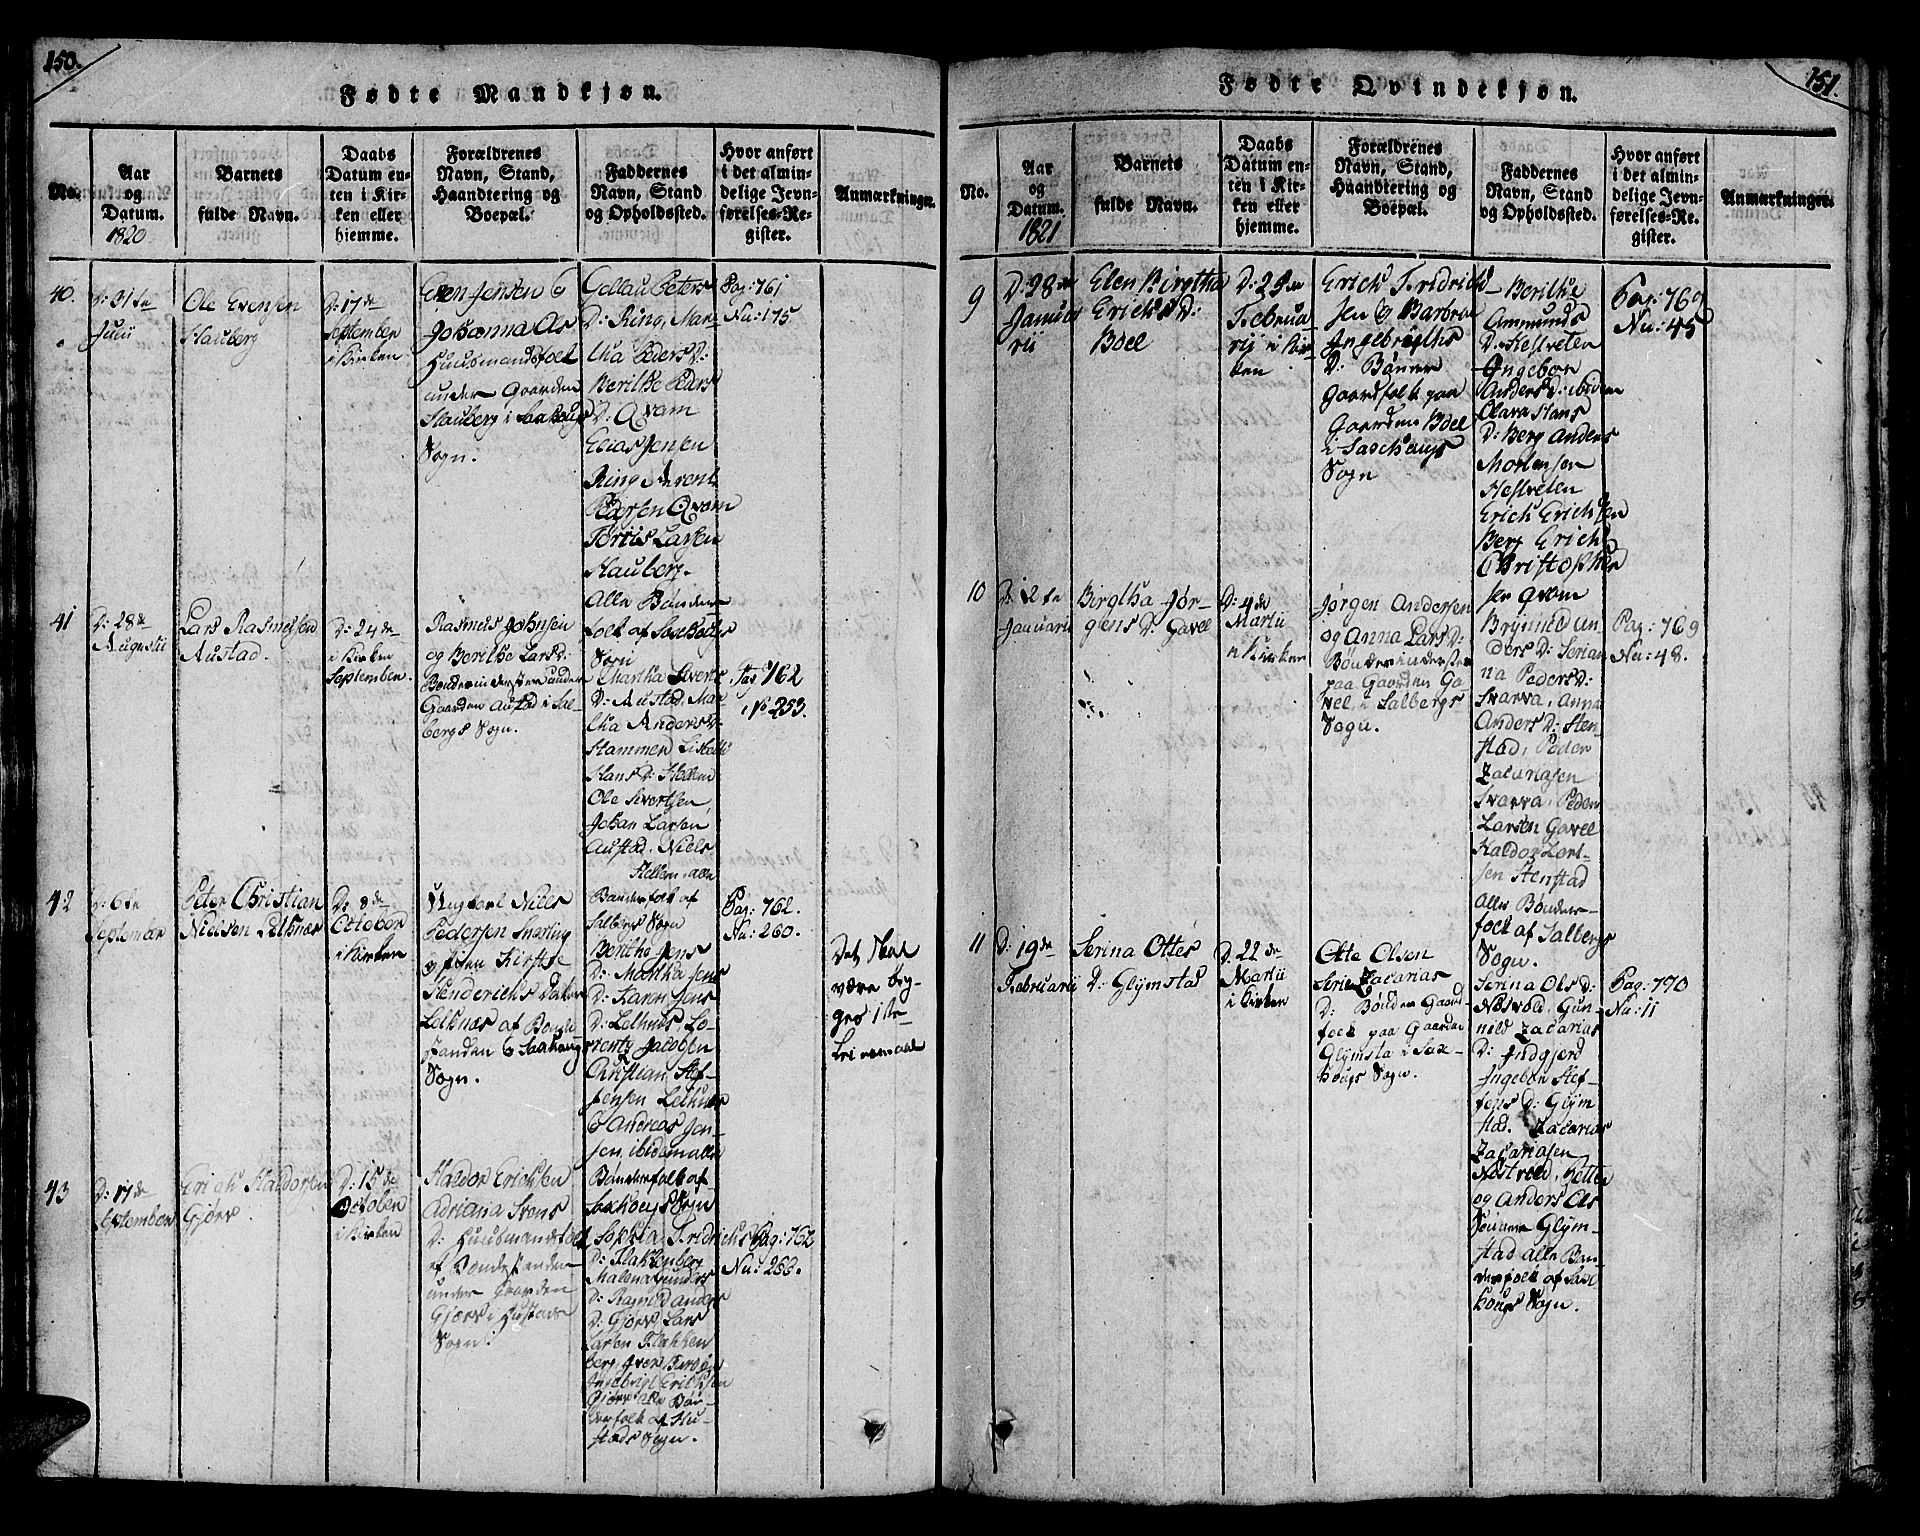 150.
Fødte Mandkjøn.
No.
Aar
og
Datum.
1820
Barnets
fulde Navn.
Daabs
Datum en-
ten i Kir-
ken eller
hjemme.
Forældrenes
Navn, Stand,
Haandtering og
Boepæl.
Faddernes
Navn, Stand
og Opholdssted.
Hvor anført
i det almin-
delige Jevn-
førelses-Re-
gister.
Anmærkninger.
40.
D: 31te
Julii
Ole Evensen
Hauberg
D: 17de
September
i Kirken
Even Jensen &
Johanna Ols
D: Huusmandsfolk
under Gaarden
Hauberg i Saxhougs
Sogn.
Peters
D: Ring, Mar-
tha Peders D:
Berithe Peders
D: Qvam
Elias Jensen
Ring Arent
Pedersen Qvam
Larsen
Hauberg.
Alle Bønder
folk af Saxhougs
Sogn
Pag: 761
Nu: 175
41
D: 28de
Augustii
Lars Rasmusen
Austad.
D: 24de
i Kirken
September.
Rasmus Johnsen
og Berithe Lars D:
Bønderinderster under
Gaarden Austad i Sal-
bergs Sogn.
Martha Siverts
D: Austad, Mar-
tha Anders D:
Hammen
Hans D: Hellem
Ole Sivertsen,
Johan Larsen
Austad, Niels
Hellem, alle
Bønderfolk af
Salbergs Sogn
Pag 762
No 253.
42
D: 6te
September
Peter Christian
Nielsen Lelknæs
D: 8de
October
i Kirken
Ungkarl Niels
Pedersen Snasting
og Pigen Kirstine
Henderichs Datter
Lelknæs af Bonde
standen & Saxhoug
Sogn.
Berithe Jens
D: Martha Jens
D: Karen Jens
D: Lelknæs Lo-
rentz Jacobsen
Christian Stef-
fensen Lelknæs
& Andreas Jen-
sen ibidem alle
Bønderfolk af
Saxhougs Sogn
Pag: 762.
Nu: 260.
Det skal
være beg-
ges 1ste
Leiermaal
43
D: 17de
September
Erich Haldorsen
Gjørv.
D: 15de
October
i Kirken
Haldor Erichsen
Adriana Svens
D: Huusmandsfolk
af Bondestanden
under Gaarden
Gjørv i Hustads
Sogn.
Sophia Fridrichs
D: Flakkenberg
Malena Gunders
D: Ragnild Anders
D: Gjørv Lars
Larsen Flakken
berg, Iver
Ingebrigt Erichsen
Gjørv alle Bøn-
derfolk af Hu-
stads Sogn.
Pag: 762
Nu: 268.
151.
Fødte Qvindekjøn.
No.
Aar
og
Datum.
1821
Barnets
fulde Navn.
Daabs
Datum en-
ten i Kir-
ken eller
hjemme.
Forældrenes
Navn, Stand,
Haandtering og
Boepæl.
Faddernes
Navn, Stand
og Opholdssted.
Hvor anført
i det almin-
delige Jevn-
førelses-Re-
gister.
Anmærkninger.
9
D: 28de
Janua
rii
Elen Birgtha
Erichs D:
Boel
D: 25de
Februa
rij i Kir-
ken
Erich Fridrich-
sen & Barbroe
Ingebrigths
D: Bønner
Gaardfolk paa
Gaarden Boel
i Saxhougs
Sogn
Berithe
Ammunds
D: Hestvelen
Ingebor
Anders D: ibidem
Olava Hans
D: Berg Anders
Mortensen
Hestvelen
Erich Erichsen
Berg Erich
Christopher
sen Qvam
Pag: 769
Nu: 45
10
D: 2te
Januarii
Birgtha Jør-
gens D: Gavel
D: 4de
Martii
i Kirken
Jørgen Andersen
og Anna Lars D:
Bønderinderster
paa Gaarden Ga-
vel i Salbergs
Sogn.
Brynnild An-
ders D: Serian-
na Peders D:
Svarva, Anna
Anders D: Sten-
stad, Peder
Zacariasen
Svarva, Peder
Larsen Gavel
Haldor Lort-
sen Stenstad
Alle Bønder-
folk af Salbergs
Sogn.
Pag: 769
Nu: 48.
11
D: 19de
Februarii
Serina Ottes
D: Glymstad
D: 22de
Martii
i Kirken
Otte Olsen
Seri Zacarias
D: Bønder Gaard-
folk paa Gaarden
Glymsta i Sax-
hougs Sogn.
Serina Ols D:
Næsvold, Gun-
nild Zacarias
D: Indgjerd
Ingebor Stef-
fens D: Glym
stad. Zacarias
Zacariasen
Næstvold, Petter
og Anders Ols
Sønner Glym-
stad alle Bøn-
derfolk af Sax
hougs Sogn.
Pag: 770
Nu: 11